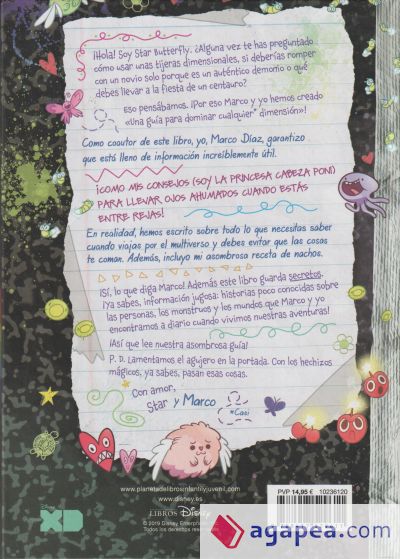 ¡Hola! Soy Star Butterfly. ¿Alguna vez te has preguntado
cómo usar unas tijeras dimensionales, si deberías romper
con un novio solo porque es un auténtico demonio o qué
debes llevar a la fiesta de un centauro?
Eso pensábamos. ¡Por eso Marco y yo hemos creado
«Una guía para dominar cualquier* dimensión»!
Como coautor de este libro, yo, Marco Díaz, garantizo
que está lleno de información increíblemente útil.
¡COMO MIS CONSEJOS (SOY LA PRINCESA CABEZA PONI)
PARA LLEVAR OJOS AHUMADOS CUANDO ESTÁS
ENTRE REJAS!
En realidad, hemos escrito sobre todo lo que necesitas saber
cuando viajas por el multiverso y debes evitar que las cosas
te coman. Además, incluyo mi asombrosa receta de nachos.
¡Sí, lo que diga Marco! Además este libro guarda secretos.
¡Ya sabes, información jugosa: historias poco conocidas sobre
las personas, los monstruos y los mundos que Marco y yo
encontramos a diario cuando vivimos nuestras aventuras!
¡Así que lee nuestra asombrosa guía!
P. D. Lamentamos el agujero en la portada. Con los hechizos
mágicos, ya sabes, pasan esas cosas.
Con amor,
Star y Marco
*Casi
www.planetadelibrosinfantilyjuvenil.com
www.disney.es
PVP 14,95 € 10236120
Disney XD
LIBROS Disney
© 2019 Disney Enterprises
Todos los derechos reservados
agapea.com